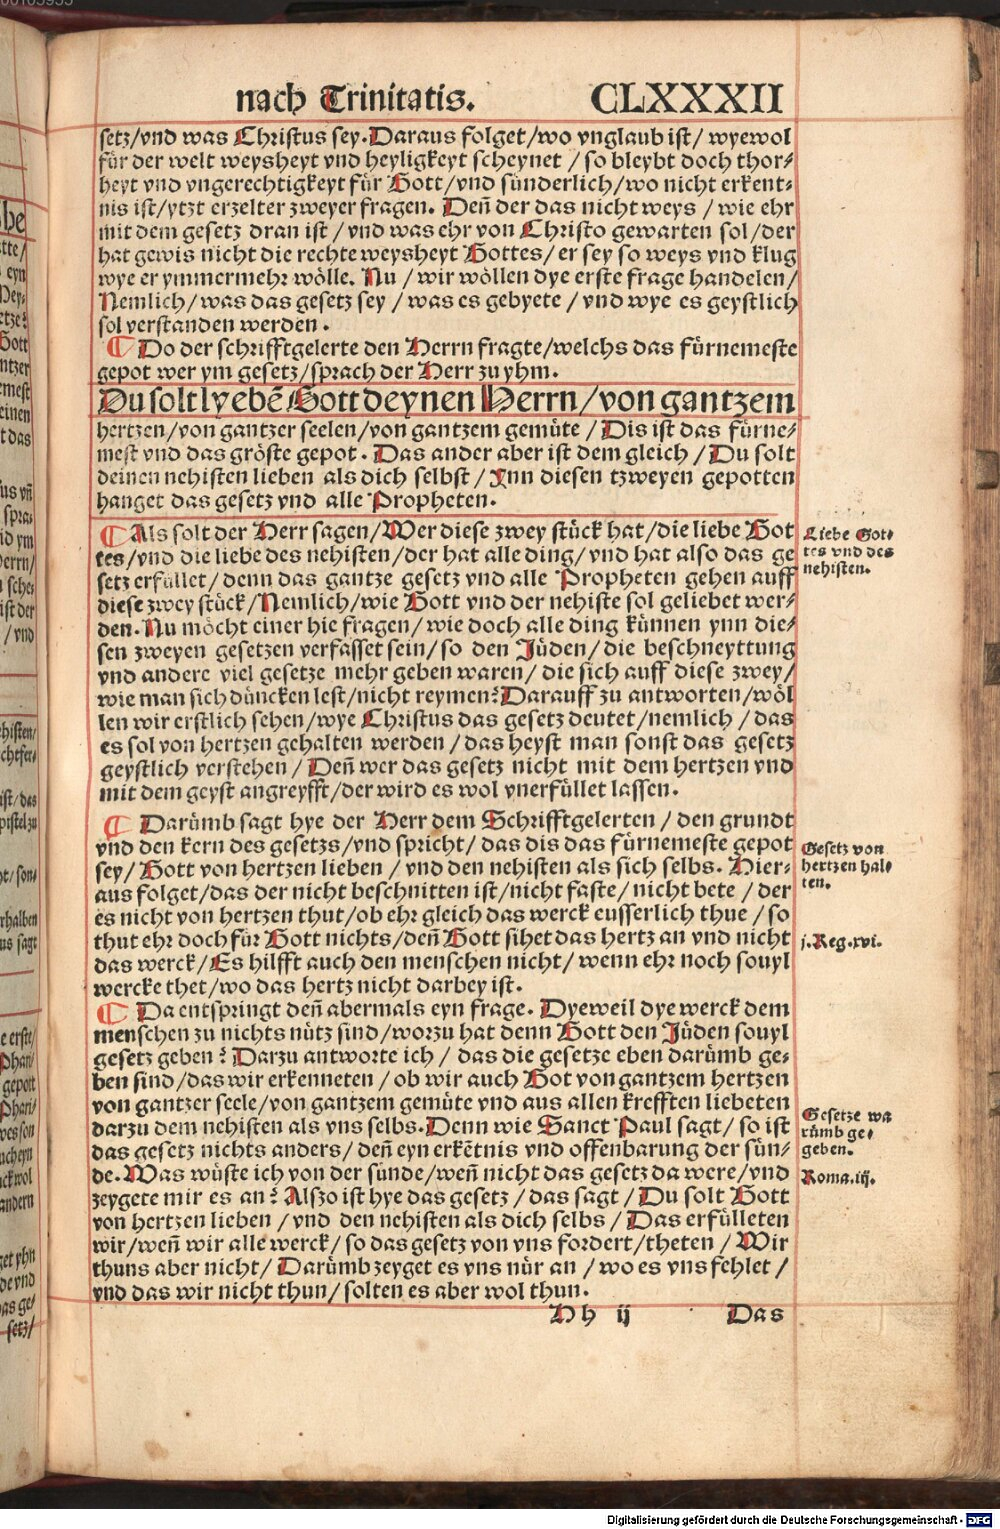 nach Trinitatis. CLXXXII
setz/vnd was Christus sey. Daraus folget/wo vnglaub ist/ wyewol
für der welt weysheyt vnd heyligkeyt scheynet / so bleybt doch thor⸗
heyt vnd vngerechtigkeyt für Gott/vnd sünderlich/wo nicht erkent⸗
nis ist/ytzt erzelter zweyer fragen. Deñ der das nicht weys / wie ehr
mit dem gesetz dran ist / vnd was ehr von Christo gewarten sol /der
hat gewis nicht die rechte weysheyt Gottes/ er sey so weys vnd klug
wye er ymmermehr wölle. Nu / wir wöllen dye erste frage handelen/
Nemlich/ was das gesetz sey / was es gebyete / vnd wye es geystlich
sol verstanden werden .
¶ Do der schrifftgelerte den Herrn fragte/welchs das fürnemeste
gepot wer ym gesetz/sprach der Herr zu yhm.
Du solt lyebē Gott deynen Herrn/von gantzem
hertzen/von gantzer seelen/von gantzem gemüte / Dis ist das fürne⸗
mest vnd das gröste gepot . Das ander aber ist dem gleich / Du solt
deinen nehisten lieben als dich selbst / Ynn diesen tzweyen gepotten
hanget das gesetz vnd alle Propheten.
¶ Als solt der Herr sagen/Wer diese zwey stück hat /die liebe Got
tes/vnd die liebe des nehisten/der hat alle ding/ vnd hat also das ge
setz erfüllet/ denn das gantze gesetz vnd alle Propheten gehen auff
diese zwey stück/Nemlich/wie Gott vnd der nehiste sol geliebet wer⸗
den. Nu möcht einer hie fragen/ wie doch alle ding künnen ynn die⸗
sen zweyen gesetzen verfasset sein/ so den Jüden/ die beschneyttung
vnd andere viel gesetze mehr geben waren/ die sich auff diese zwey/
wie man sich düncken lest/nicht reymen? Darauff zu antworten/wöl
len wir erstlich sehen/wye Christus das gesetz deutet/nemlich / das
es sol von hertzen gehalten werden / das heyst man sonst das gesetz
geystlich verstehen / Deñ wer das gesetz nicht mit dem hertzen vnd
mit dem geyst angreyfft/der wird es wol vnerfüllet lassen.
¶ Darümb sagt hye der Herr dem Schrifftgelerten / den grundt
vnd den kern des gesetzs/vnd spricht/ das dis das fürnemeste gepot
sey/ Gott von hertzen lieben / vnd den nehisten als sich selbs. Hier⸗
aus folget/das der nicht beschnitten ist/nicht faste/ nicht bete / der
es nicht von hertzen thut/ob ehr gleich das werck eusserlich thue / so
thut ehr doch für Gott nichts/deñ Gott sihet das hertz an vnd nicht
das werck/Es hilfft auch den menschen nicht/ wenn ehr noch souyl
wercke thet/wo das hertz nicht darbey ist.
¶ Da entspringt deñ abermals eyn frage. Dyeweil dye werck dem
menschen zu nichts nütz sind/worzu hat denn Gott den Jüden souyl
gesetz geben? Darzu antworte ich / das die gesetze eben darümb ge⸗
ben sind/das wir erkenneten / ob wir auch Got von gantzem hertzen
von gantzer seele/von gantzem gemüte vnd aus allen krefften liebeten
darzu dem nehisten als vns selbs. Denn wie Sanct Paul sagt/ so ist
das gesetz nichts anders/ deñ eyn erkētnis vnd offenbarung der sün⸗
de. Was wüste ich von der sünde/weñ nicht das gesetz da were/vnd
zeygete mir es an? Alszo ist hye das gesetz / das sagt / Du solt Gott
von hertzen lieben / vnd den nehisten als dich selbs / Das erfülleten
wir/weñ wir alle werck/ so das gesetz von vns fordert/theten / Wir
thuns aber nicht/ Darümb zeyget es vns nür an / wo es vns fehlet /
vnd das wir nicht thun/ solten es aber wol thun.
Hh ij Das
Liebe Got⸗
tes vnd des
nehisten.
Gesetz von
hertzen hal⸗
ten.
j.Reg.xvi.
Gesetze wa
rümb ge⸗
geben.
Roma.iij.
Digitalisierung gefördert durch die Deutsche Forschungsgemeinschaft - DFG